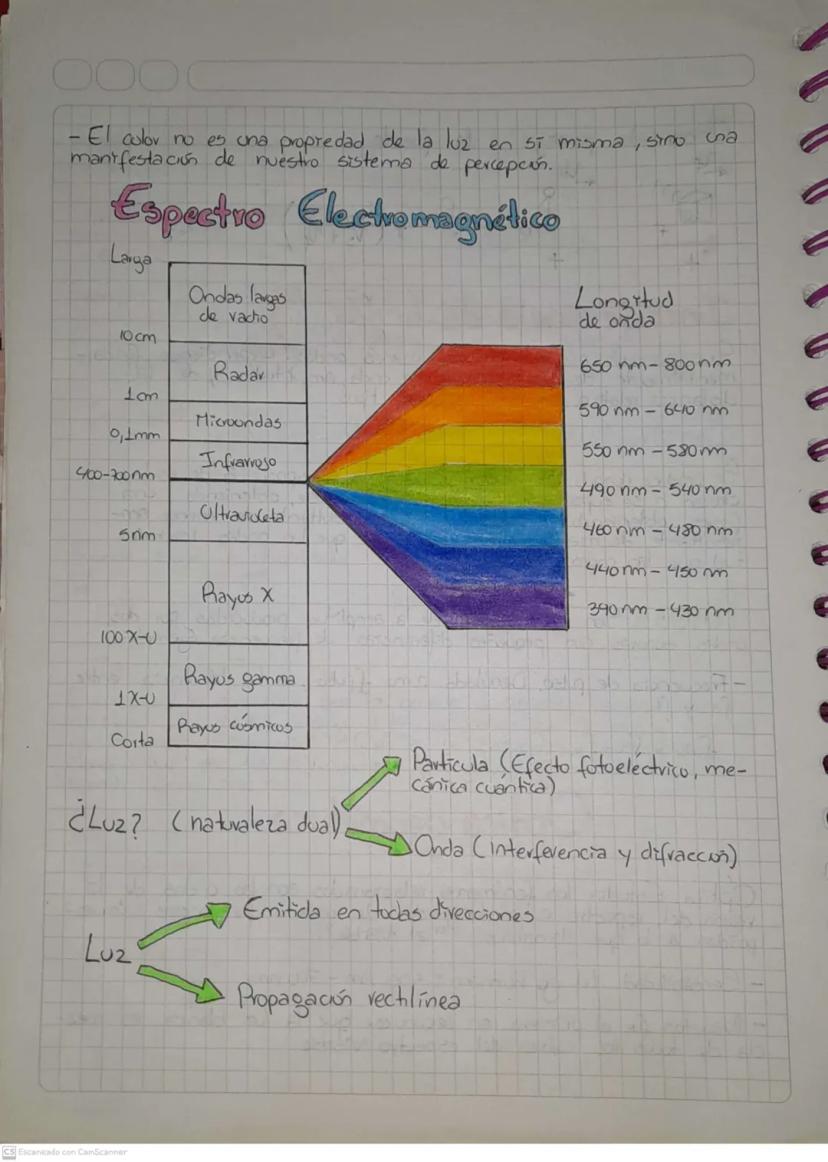 - El color no es una propredad de la luz en sí misma, sino una
manifestación de nuestro sistema de percepción.
Espectro Electromagnético
Larga
Ondas largas
de vacho
10cm
Radar
1cm
Microondas
0,1mm
Infrarrojo
400-700nm
Ultravioleta
5nm
Rayos X
100 X-U
Rayos gamma
1X-U
Rayos cósmicos
Corta
Longitud
de onda
650 nm - 800 nm
590 nm - 640 nm
550 nm - 580 nm
490 nm - 540 nm
460 nm - 480 nm
440 nm - 450 nm
390 nm - 430 nm
Partícula (Efecto fotoeléctrico, me-
cánica cuántica)
¿Luz? (naturaleza dual)
Onda (Interferencia y difracción)
Emitida en todas direcciones
Luz
Propagación rectilínea
CS Escaneado con CamScanner